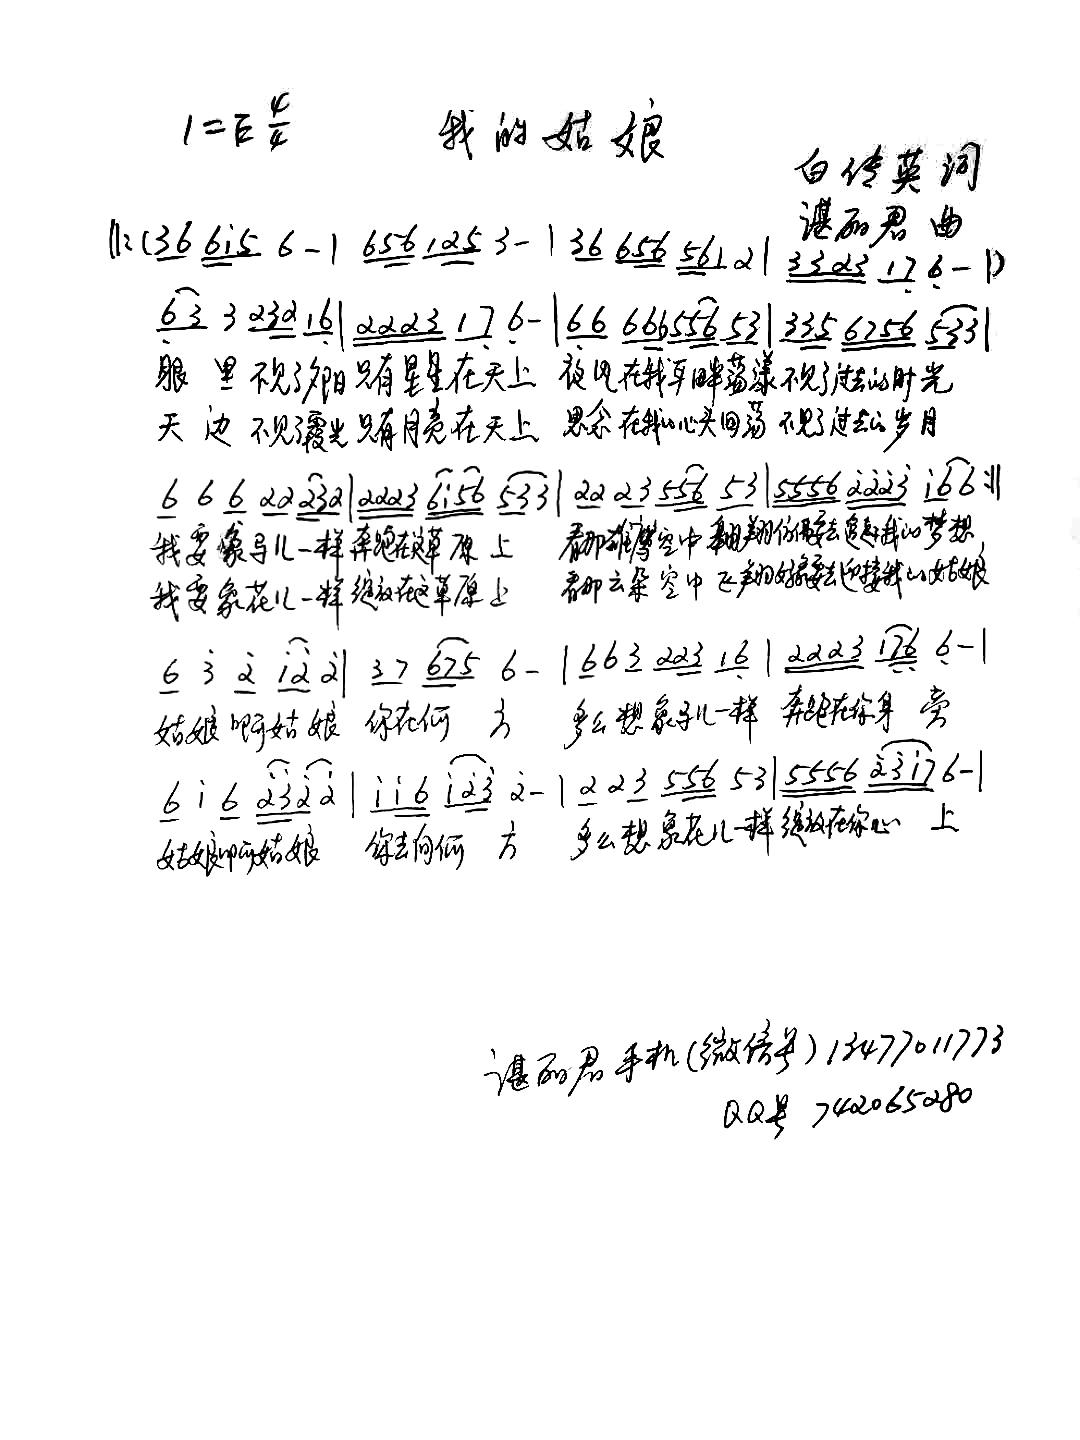 1=E 4/4 我的姑娘
白传英词
谌丽君曲
‖:(36 6i5 6-| 656 125 3-| 36 656 561 2| 3323 17 6-|)
63 3 232 16| 2223 17 6-| 66 666556 53| 335 6756 533|
眼里不见了夕阳只有星星在天上 夜色在我草畔荡漾不见了过去的时光
天边不见了霞光只有月亮在天上 思念在我的心头回荡 不见了过去的岁月
6 6 6 22 232| 2223 6i56 533| 22 23 556 53| 5556 2223 i66:‖
我要象马儿一样奔跑在这草原上 看那雄鹰空中翱翔你要去追赶我的梦想
我要象花儿一样绽放在这草原上 看那云朵空中飞翔要去迎接我的姑娘
6 3 2 i2 2| 37 675 6-| 663 223 16| 2223 176 6-|
姑娘啊姑娘 你在何方 多么想象马儿一样 奔跑在你身旁
6 i 6 2322| ii6 i23 2-| 2 23 556 53| 5556 23i7 6-|
姑娘啊姑娘 你去向何方 多么想象花儿一样绽放在你心上
谌丽君手机(微信号)13477011773
QQ号 742065280